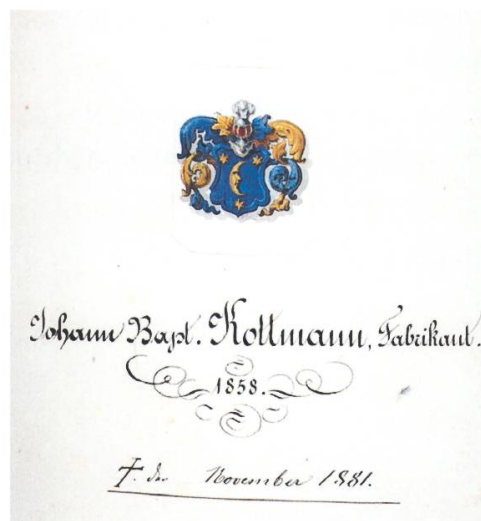 Johann Bapt. Kottmann, Fabrikant.
1858.
†. den November 1881.